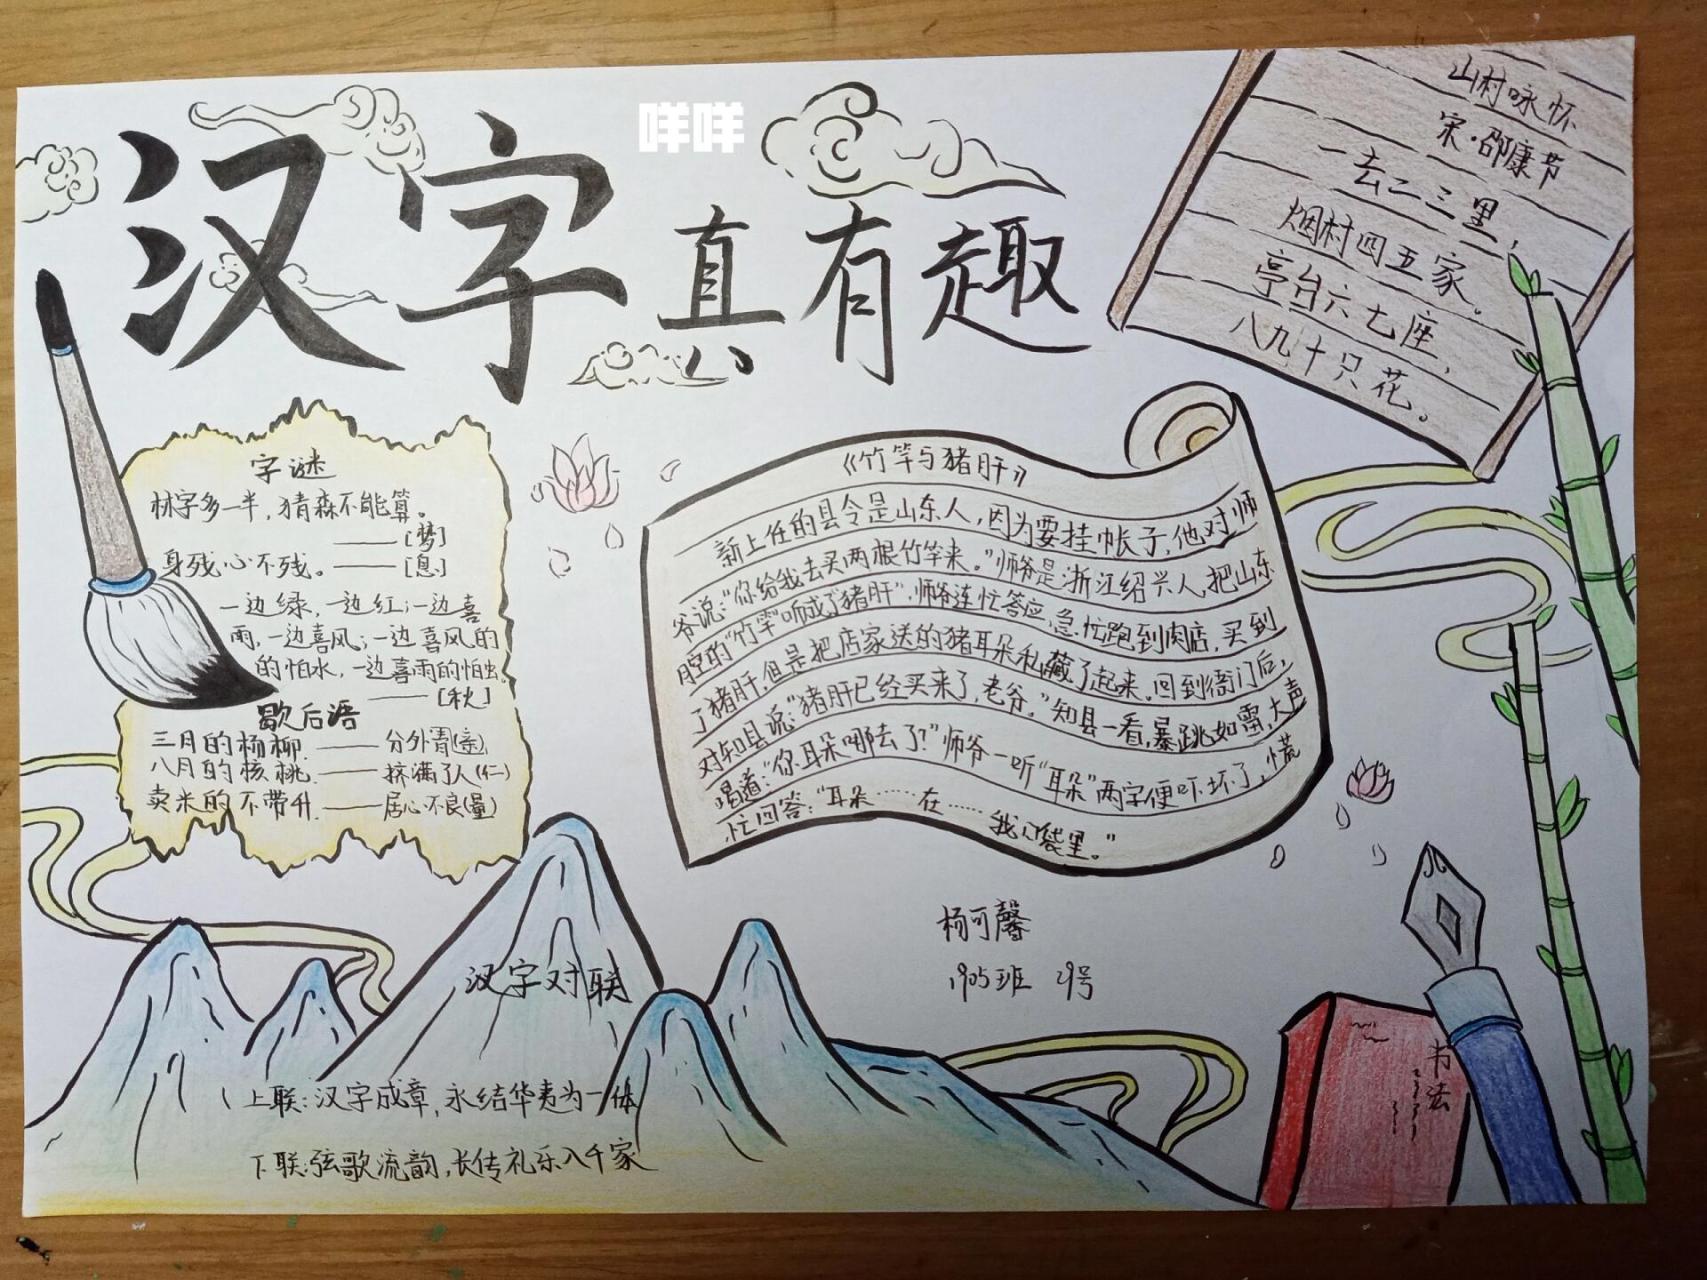 咩咩
汉字真有趣
山村咏怀
宋·邵康节
一去二三里,
烟村四五家。
亭台六七座,
八九十只花。
字谜
林字多一半,猜森不能算。
——[梦]
身残心不残。——[息]
一边绿,一边红;一边喜
雨,一边喜风;一边喜风的
的怕水,一边喜雨的怕虫。
——[秋]
歇后语
三月的杨柳——分外青(亲)
八月的核桃——挤满了人(仁)
卖米的不带升——居心不良(量)
《竹竿与猪肝》
新上任的县令是山东人,因为要挂帐子,他对师
爷说:“你给我去买两根竹竿来。”师爷是浙江绍兴人,把山东
腔的“竹竿”听成了“猪肝”,师爷连忙答应,急忙跑到肉店,买到
了猪肝,但是把店家送的猪耳朵私藏了起来。回到衙门后,
对知县说:“猪肝已经买来了,老爷。”知县一看,暴跳如雷,大声
喝道:“你耳朵哪去了?”师爷一听“耳朵”两字便吓坏了,慌
忙回答:“耳朵……在……我口袋里。”
杨可馨
1905班 29号
汉字对联
上联:汉字成章,永结华夷为一体
下联:弦歌流韵,长传礼乐入千家
书法